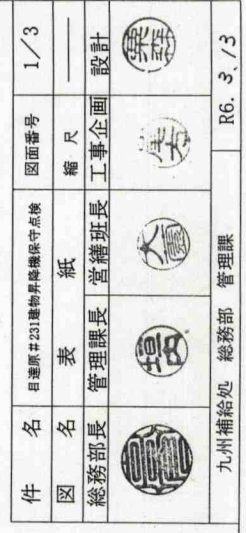 件 名 目達原#231建物昇降機保守点検 図面番号 1/3
図 名 表 紙 縮 尺 ―
総務部長 管理課長 営繕班長 工事企画 設計
九州補給処 総務部 管理課 R6.3.13